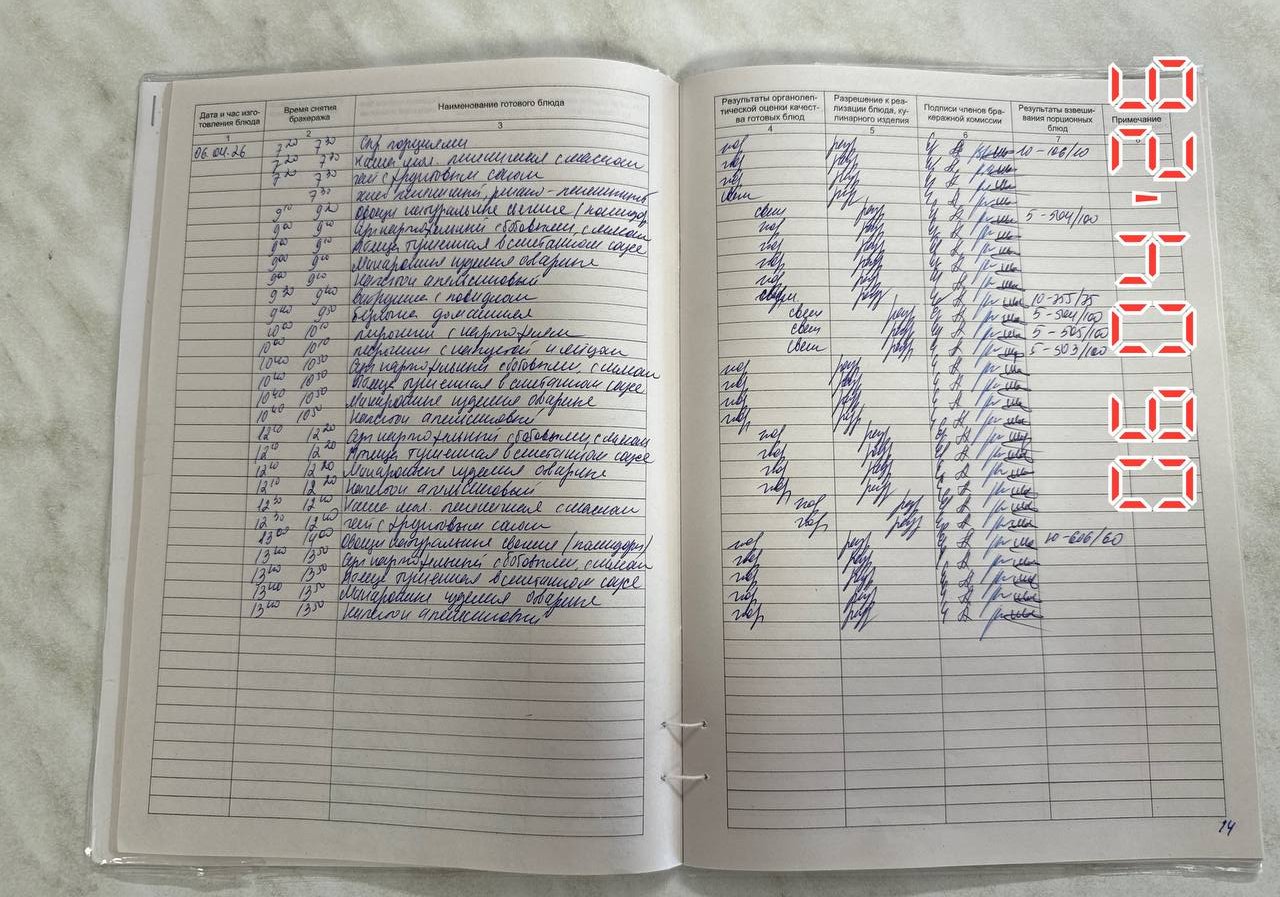 Дата и час изготовления блюда
Время снятия бракеража
Наименование готового блюда
1 2 3
06.04.26 7 20 7 30 Сыр порциями
7 20 7 30 Каша мол. пшеничная с маслом
7 20 7 30 Чай с фруктовым соком
7 30 Хлеб пшеничный, ржано-пшеничный
9 10 9 20 Овощи натуральные свежие /помидор
9 00 9 10 Суп картофельный с бобовыми, с мясом
9 00 9 10 Птица тушенная в сметанном соусе
9 00 9 10 Макаронные изделия отварные
9 00 9 10 Напиток апельсиновый
9 30 9 40 Ватрушка с повидлом
9 40 9 50 домашняя
10 00 10 10 пирожки с картофелем
10 00 10 10 пирожки с капустой и яйцом
10 40 10 50 Суп картофельный с бобовыми, с мясом
10 40 10 50 Птица тушенная в сметанном соусе
10 40 10 50 Макаронные изделия отварные
10 40 10 50 Напиток апельсиновый
12 10 12 20 Суп картофельный с бобовыми, с мясом
12 10 12 20 Птица тушенная в сметанном соусе
12 10 12 20 Макаронные изделия отварные
12 10 12 20 Напиток апельсиновый
12 30 12 40 Каша мол. пшеничная с маслом
12 30 12 40 Чай с фруктовым соком
Овощи натуральные свежие /помидоры/
13 40 13 50 Суп картофельный с бобовыми, с мясом
13 40 13 50 Птица тушенная в сметанном соусе
13 40 13 50 Макаронные изделия отварные
13 40 13 50 Напиток апельсиновый
Результаты органолептической оценки качества готовых блюд
Разрешение к реализации блюда, кулинарного изделия
Подписи членов бракеражной комиссии
Результаты взвешивания порционных блюд
Примечание
4 5 6 7 8
хор разр 10-106/10
хор разр
хор разр
свеж
свеж разр 5-504/100
хор разр
хор разр
хор разр
хор разр
свеж разр 10-755/75
свеж разр 5-504/100
свеж разр 5-505/100
свеж разр 5-503/100
хор разр
хор разр
хор разр
хор разр
хор разр
хор разр
хор разр
хор разр
хор разр
хор разр
хор разр 10-606/60
хор разр
хор разр
хор разр
хор разр
06-04-'26